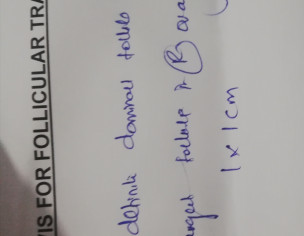 IS FOR FOLLICULAR TRA
definite dominant follicle
follicle in (R) ova
1 x 1 cm